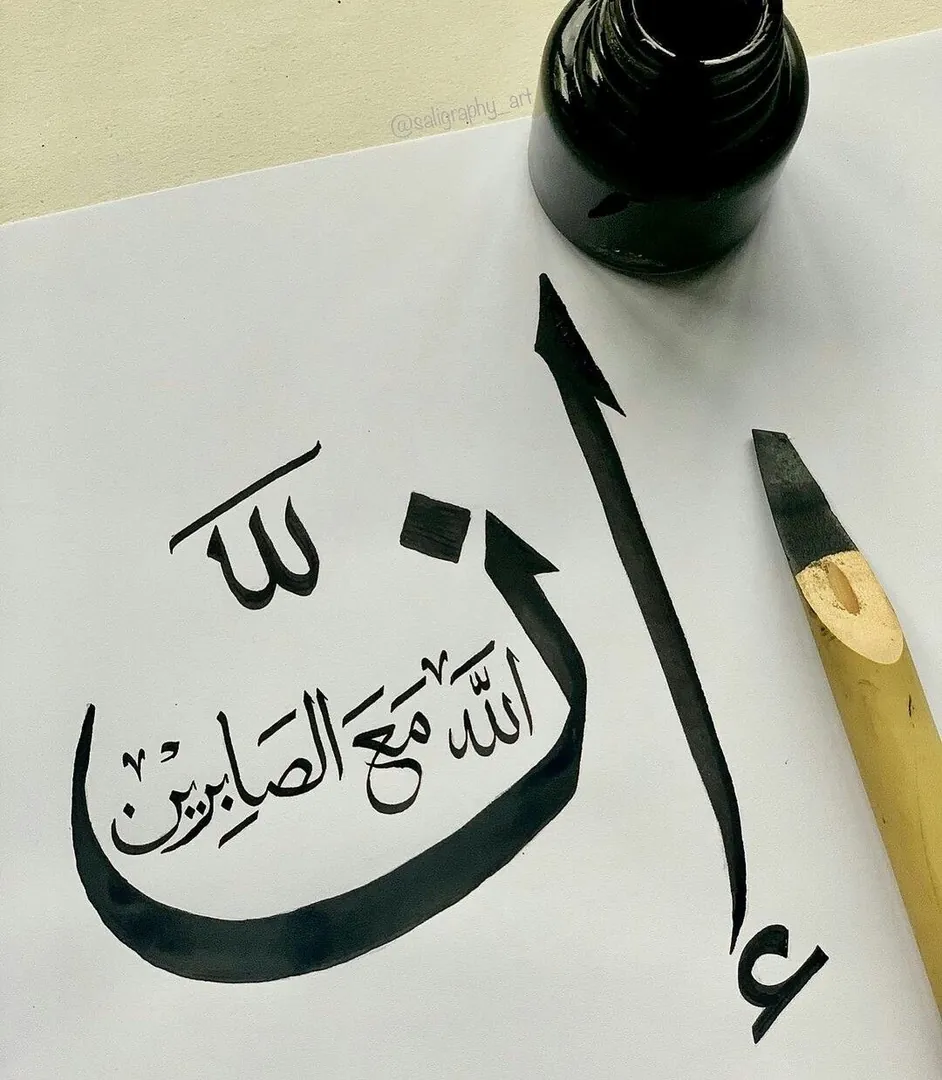 @saligraphy_art
إنَّ
اللّٰهَ مَعَ الصَابِرِيْنَ